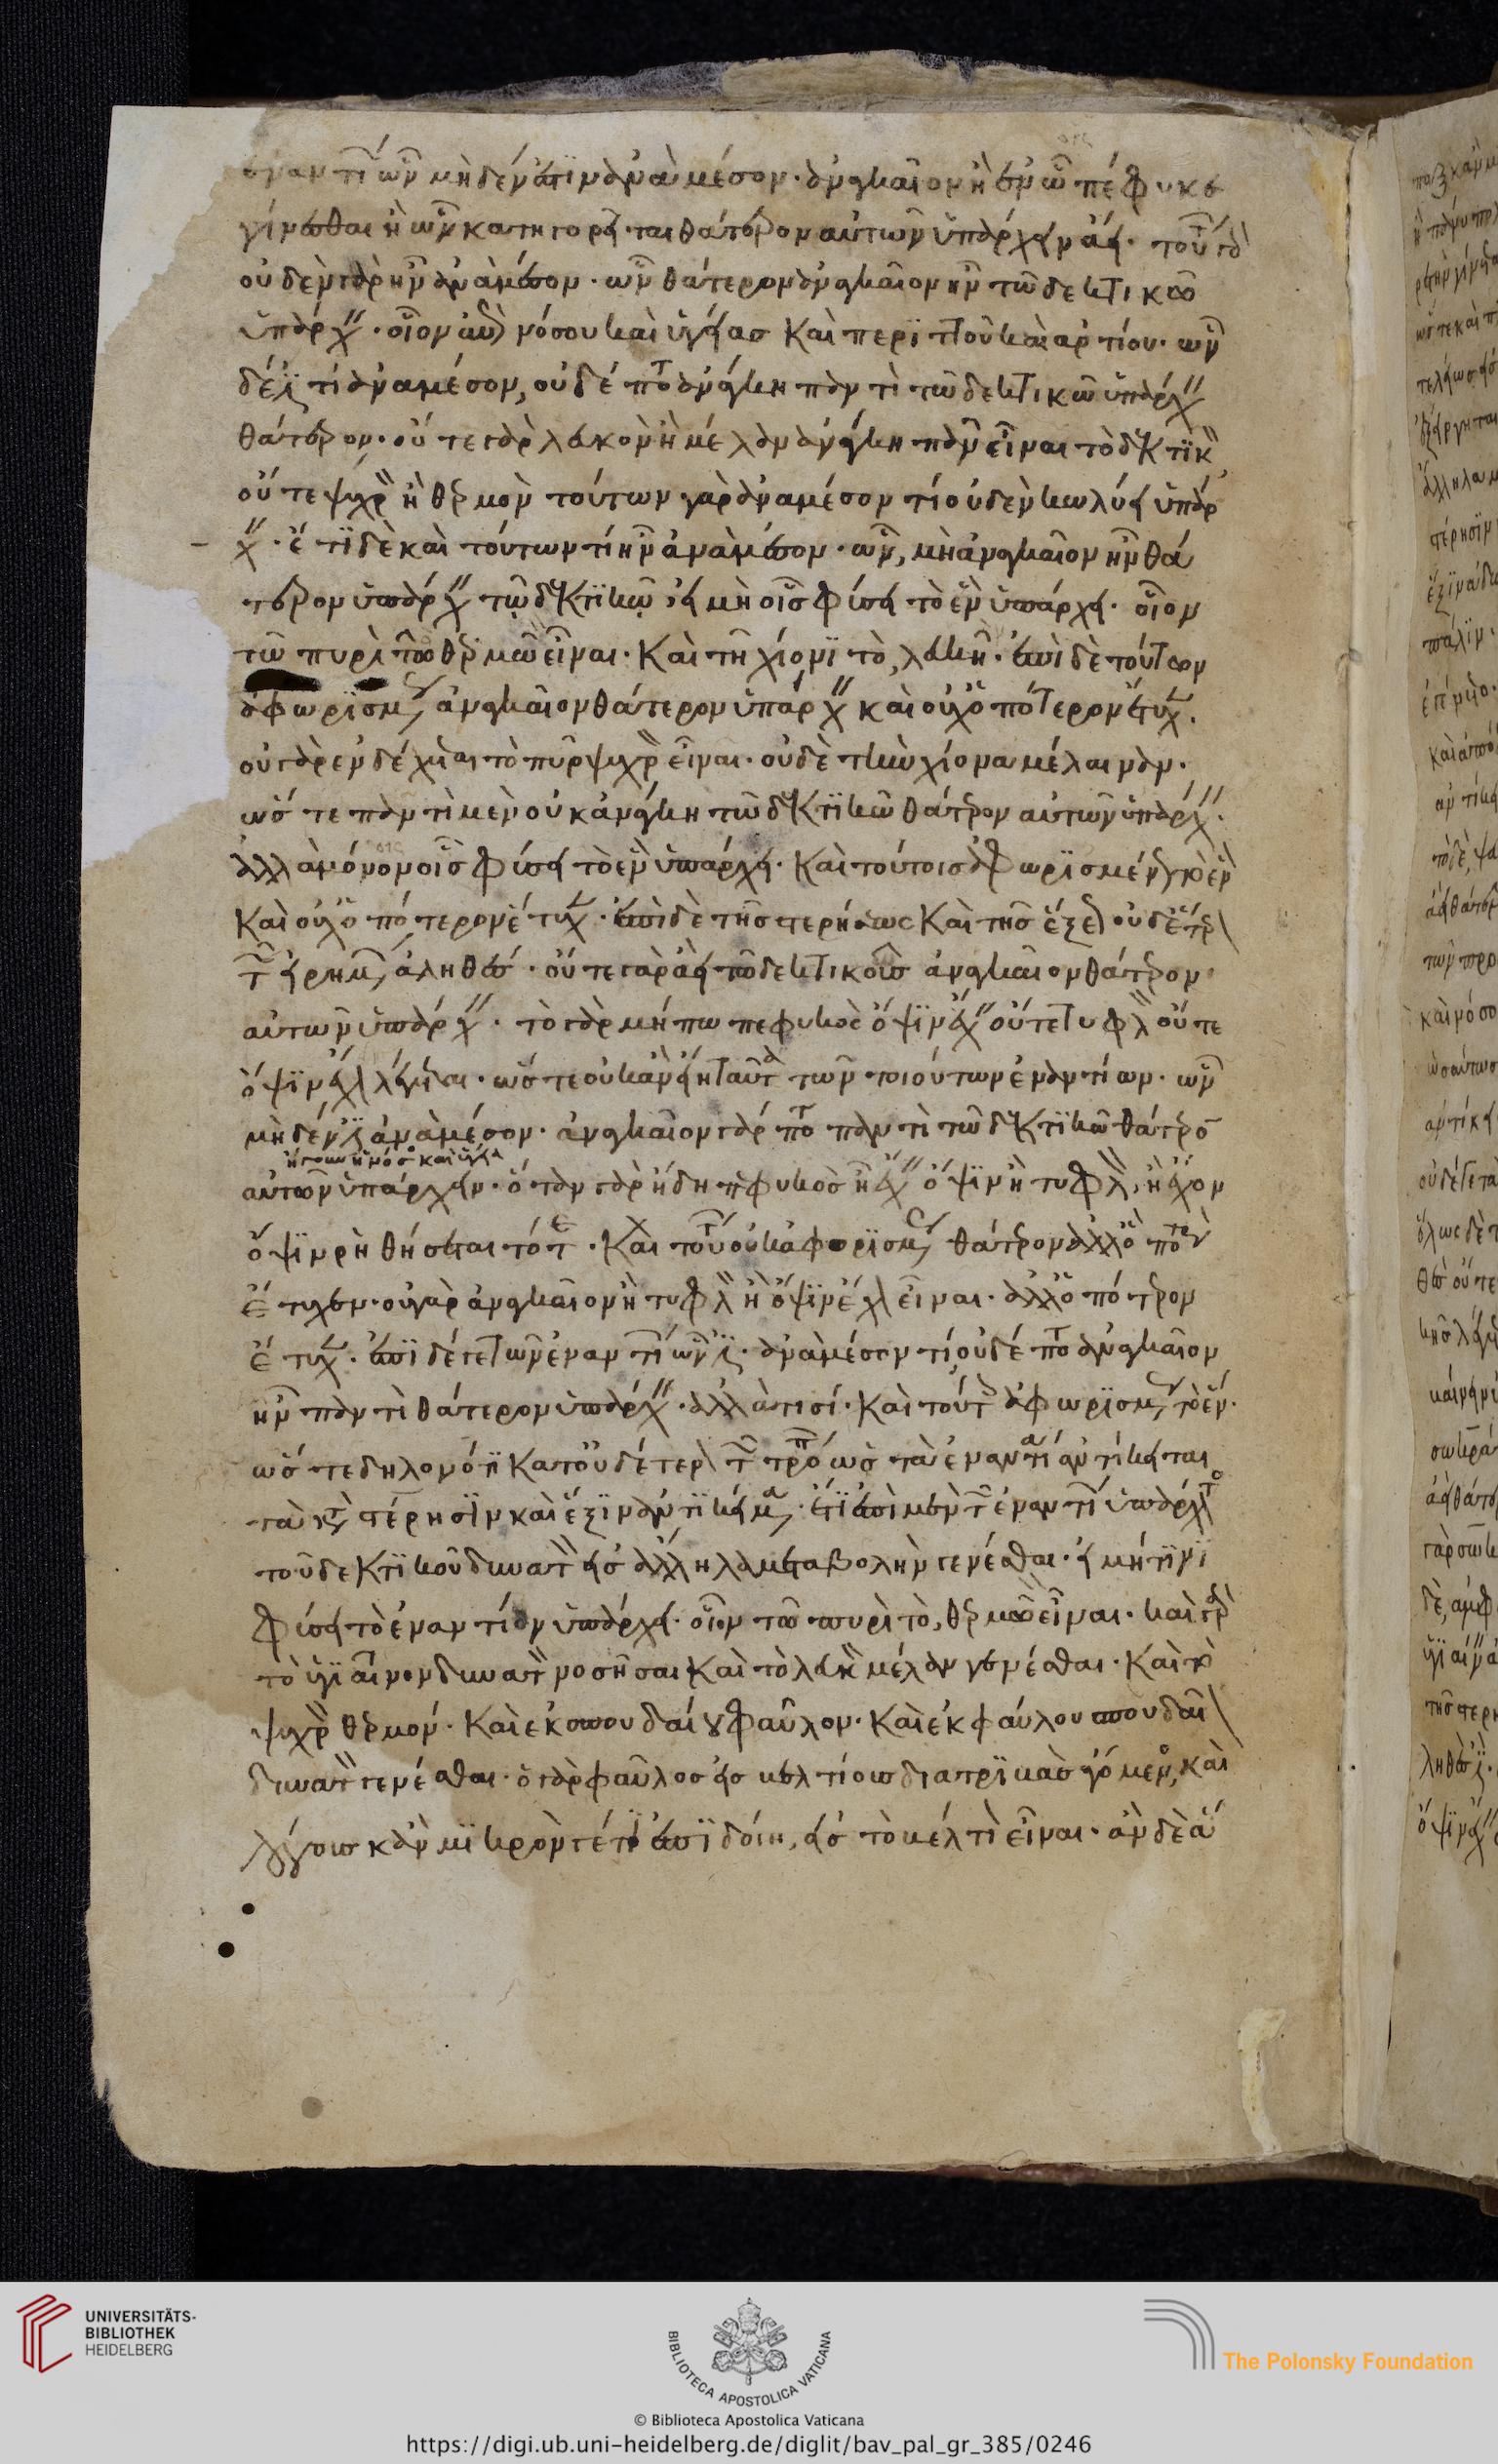 ἐναντίων μηδέν ἐστιν ἀνὰ μέσον· ἀναγκαῖον ἢ ἐν ᾧ πέφυκε
γίνεσθαι ἢ ὧν κατηγορεῖται θάτερον αὐτῶν ὑπάρχειν ἀεί· τούτων
οὐδὲν γὰρ ἦν ἀνὰ μέσον· ὧν θάτερον ἀναγκαῖον ἦν τῶ δεκτικῶ
ὑπάρχειν· οἷον ἐπὶ νόσου καὶ ὑγείας καὶ περιττοῦ καὶ ἀρτίου· ὧν
δέ ἐστί τι ἀναμέσον, οὐδέποτε ἀνάγκη παντὶ τῶ δεκτικῶ ὑπάρχειν
θάτερον· οὔτε γὰρ λευκὸν ἢ μέλαν ἀνάγκη πᾶν εἶναι τὸ δεκτικὸν
οὔτε ψυχρὸν ἢ θερμὸν τούτων γὰρ ἀναμέσον τι οὐδὲν κωλύει ὑπάρ
χειν· ἔτι δὲ καὶ τούτων τι ἦν ἀνὰ μέσον· ὧν, μὴ ἀναγκαῖον ἦν θά
τερον ὑπάρχειν τῷ δεκτικῷ εἰ μὴ οἷς φύσει τὸ ἓν ὑπάρχει· οἷον
τῶ πυρὶ τὸ θερμῶ εἶναι· καὶ τῆ χιόνι τὸ λευκῆ· ἐπὶ δὲ τούτων
ἀφωρισμένως ἀναγκαῖον θάτερον ὑπάρχειν καὶ οὐχ ὁπότερον ἔτυχεν·
οὐ γὰρ ἐνδέχεται τὸ πῦρ ψυχρὸν εἶναι· οὐδὲ τὴν χιόνα μέλαιναν·
ὥστε παντὶ μὲν οὐκ ἀνάγκη τῶ δεκτικῶ θάτερον αὐτῶν ὑπάρχειν·
ἀλλὰ μόνον οἷς φύσει τὸ ἓν ὑπάρχει· καὶ τούτοις ἀφωρισμένως τὸ ἓν
καὶ οὐχ ὁπότερον ἔτυχεν· ἐπὶ δὲ τῆς στερήσεως καὶ τῆς ἕξεως οὐδέτερον
τῶν εἰρημένων ἀληθές· οὔτε γὰρ ἀεὶ τῶ δεκτικοῖς ἀναγκαῖον θάτερον
αὐτῶν ὑπάρχειν· τὸ γὰρ μήπω πεφυκὸς ὄψιν ἔχειν οὔτε τυφλὸν οὔτε
ὄψιν ἔχον λέγεται· ὥστε οὐκ ἂν εἴη ταῦτα τῶν τοιούτων ἐναντίων· ὧν
μηδέν ἐστιν ἀνὰ μέσον· ἀναγκαῖον γάρ ποτε παντὶ τῶ δεκτικῶ θάτερον
ἤγουν ἢ νόσον καὶ ὑγείαν
αὐτῶν ὑπάρχειν· ὅταν γὰρ ἤδη πεφυκὸς ἦ ἔχειν ὄψιν ἢ τυφλὸν ἢ ἔχον
ὄψιν ῥηθήσεται τότε· καὶ τούτων οὐκ ἀφωρισμένως θάτερον ἀλλ' ὁπότερον
ἔτυχεν· οὐ γὰρ ἀναγκαῖον ἢ τυφλὸν ἢ ὄψιν ἔχον εἶναι· ἀλλ' ὁπότερον
ἔτυχεν· ἐπὶ δέ γε τῶν ἐναντίων ὧν ἐστὶν ἀνὰ μέσον τι οὐδέποτε ἀναγκαῖον
ἦν παντὶ θάτερον ὑπάρχειν· ἀλλὰ τισί· καὶ τούτοις ἀφωρισμένως τὸ ἕν·
ὥστε δῆλον ὅτι κατ' οὐδέτερον τῶν τρόπων ὡς τὰ ἐναντία ἀντίκειται
τὰ κατὰ στέρησιν καὶ ἕξιν ἀντικείμενα· ἔτι ἐπὶ μὲν τῶν ἐναντίων ὑπάρχοντος
τοῦ δεκτικοῦ δυνατὸν εἰς ἄλληλα μεταβολὴν γενέσθαι· εἰ μή τινι
φύσει τὸ ἐναντίον ὑπάρχει· οἷον τῶ πυρὶ τὸ, θερμῶ εἶναι· καὶ γὰρ
τὸ ὑγιαῖνον δυνατὸν νοσῆσαι καὶ τὸ λευκὸν μέλαν γενέσθαι· καὶ τὸ
ψυχρὸν θερμόν· καὶ ἐκ σπουδαίου φαῦλον· καὶ ἐκ φαύλου σπουδαῖον
δυνατὸν γενέσθαι· ὁ γὰρ φαῦλος εἰς βελτίους διατριβὰς ἀγόμενος, καὶ
λόγους κἂν μικρὸν γέ τι ἐπιδοίη, εἰς τὸ βέλτιον εἶναι· ἐὰν δὲ ἅ
UNIVERSITÄTS-
BIBLIOTHEK
HEIDELBERG
BIBLIOTECA APOSTOLICA VATICANA
© Biblioteca Apostolica Vaticana
The Polonsky Foundation
https://digi.ub.uni-heidelberg.de/diglit/bav_pal_gr_385/0246